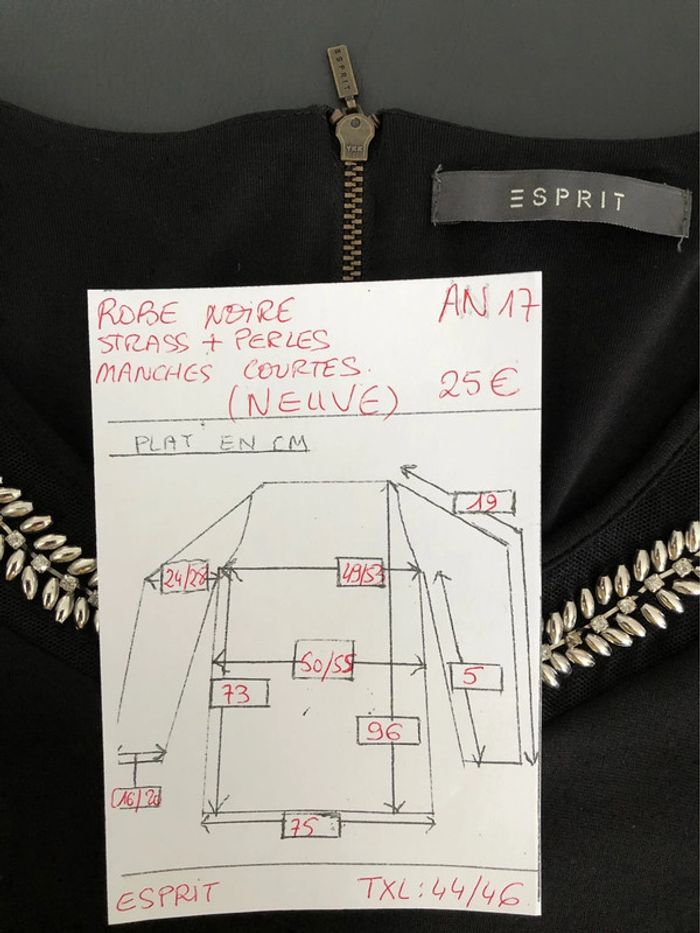 ESPRIT
YKK
ESPRIT
ROBE NOIRE AN 17
STRASS + PERLES
MANCHES COURTES.
(NEUVE) 25€
PLAT EN CM
19
24/28 49/53
50/55
73 5
96
16/20
75
ESPRIT TXL: 44/46